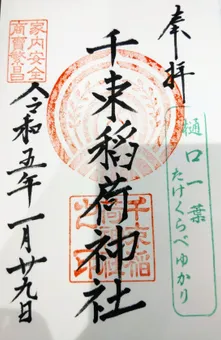 奉拝
樋口一葉
たけくらべゆかり
千束稲荷神社
家内安全
商賣繁昌
令和五年一月廿九日